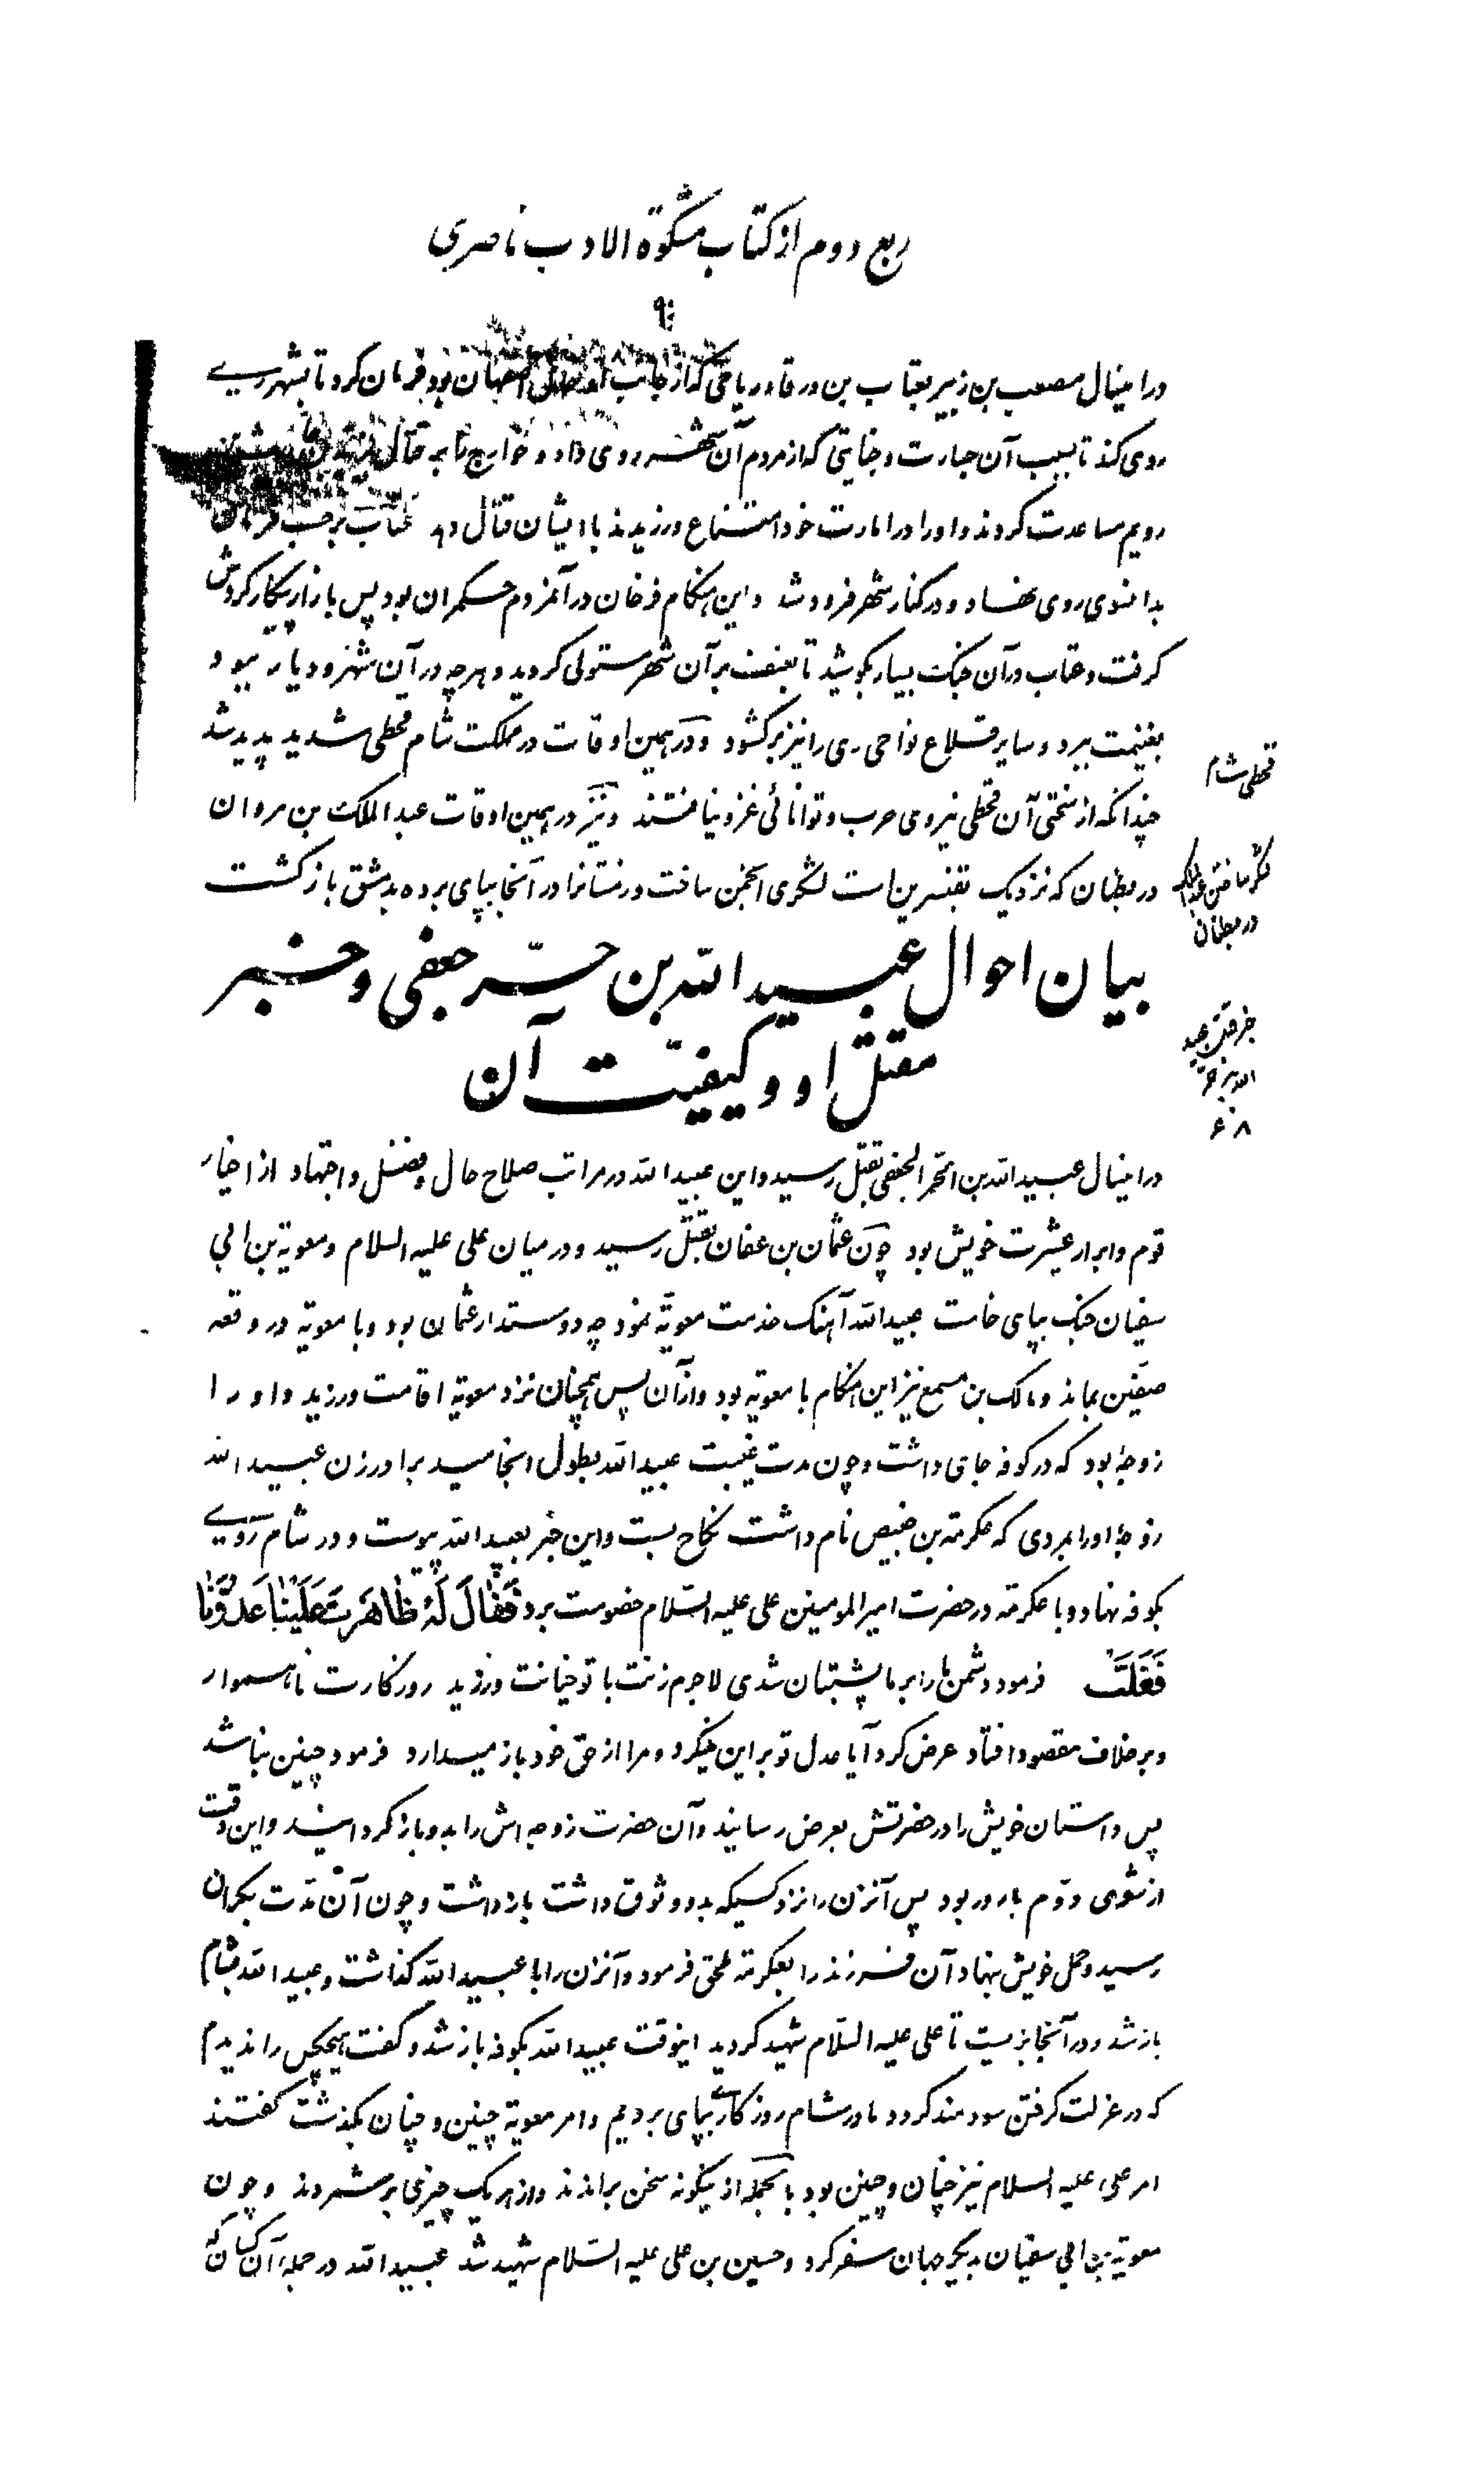 ربع دوم از کتاب مشکوة الادب ناصری
۹۰
دراینسال مصعب بن زبیر بعتاب بن ورقاء ریاحی که از جانب او عامل اصفهان بود فرمان کرد تا بشهر ری
روی کند تا بسبب آن جسارت و جنایتی که از مردم آن شهر روی داد و خوارج را بر قتال یزید بن
رویم مساعدت کردند و او را در امارت خود امتناع ورزیدند با ایشان قتال دهد عتاب برحسب فرمان
بدانسوی روی نهاد و در کنار شهر فرود شد و این هنگام فرخان در آنمردم حکمران بود پس بازار پیکار گردش
گرفت و عتاب در آن جنگ بسیار بکوشید تا بعنف بر آن شهر مستولی گردید و هر چه در آن شهر و دیار بود
بغنیمت ببرد و سایر قلاع نواحی ری را نیز برگشود و در همین اوقات در مملکت شام قحطی شدید پدید شد
چندانکه از سختی آن قحطی نیروی حرب و توانائی غزو نیافتند و نیز در همین اوقات عبد الملک بن مروان
در بطنان که نزدیک بقنسرین است لشگری انجمن ساخت و زمستانرا در آنجا بپای برده بدمشق بازگشت
قحطی شام
لشگر ساختن عبدالملک
در بطنان
بیان احوال عبید الله بن حر جعفی و خبر
مقتل او و کیفیت آن
خبر قتل عبید
الله بن حر
۶۸
دراینسال عبید الله بن الحر الجعفی بقتل رسید و این عبید الله در مراتب صلاح حال و فضل و اجتهاد از اخیار
قوم و ابرار عشیرت خویش بود چون عثمان بن عفان بقتل رسید و در میان علی علیه السلام و معویة بن ابی
سفیان جنگ بپای خاست عبید الله آهنگ خدمت معویة نمود چه دوستدار عثمان بود و با معویة در وقعه
صفین بماند و مالک بن مسمع نیز این هنگام با معویه بود و از آن پس همچنان نزد معویة اقامت ورزید و او را
زوجۀ بود که در کوفه جای داشت و چون مدت غیبت عبید الله بطول انجامید برادر زن عبید الله
زوجۀ او را بمردی که عکرمة بن خبیص نام داشت نکاح بست و این خبر بعبید الله پیوست و در شام روی
بکوفه نهاد و با عکرمة در حضرت امیر المومنین علی علیه السلام خصومت برد فَقالَ لَهُ ظاهَرتَ عَلَینا عَدُوَّنا
فَغَلَتَ فرمود دشمن ما را بر ما پشتبان شدی لاجرم زنت با تو خیانت ورزید روزگارت ناهموار
و برخلاف مقصود افتاد عرض کرد آیا عدل تو بر این میگردد و مرا از حق خود باز میدارد فرمود چنین نباشد
پس داستان خویش را در حضرتش بعرض رسانید و آن حضرت زوجه اش را بدو باز گردانید و این وقت
از شوی دوم بارور بود پس آنزن را نزد کسیکه بدو وثوق داشت بازداشت و چون آن مدت بکران
رسید و حمل خویش بنهاد آن فرزند را بعکرمة ملحق فرمود و آنزن را با عبید الله گذاشت و عبید الله بشام
باز شد و در آنجا بزیست تا علی علیه السلام شهید گردید اینوقت عبید الله بکوفه باز شد و گفت هیچکس را ندیدم
که در عزلت گرفتن سودمند گردد ما در شام روزگاری بپای بردیم و امر معویة چنین و چنان بگذشت گفتند
امر علی علیه السلام نیز چنان و چنین بود بالجمله از اینگونه سخن براندند و از هر یک چیزی برشمردند و چون
معویة بن ابی سفیان بدیگر جهان سفر کرد و حسین بن علی علیه السلام شهید شد عبید الله در جمله آن کسان که